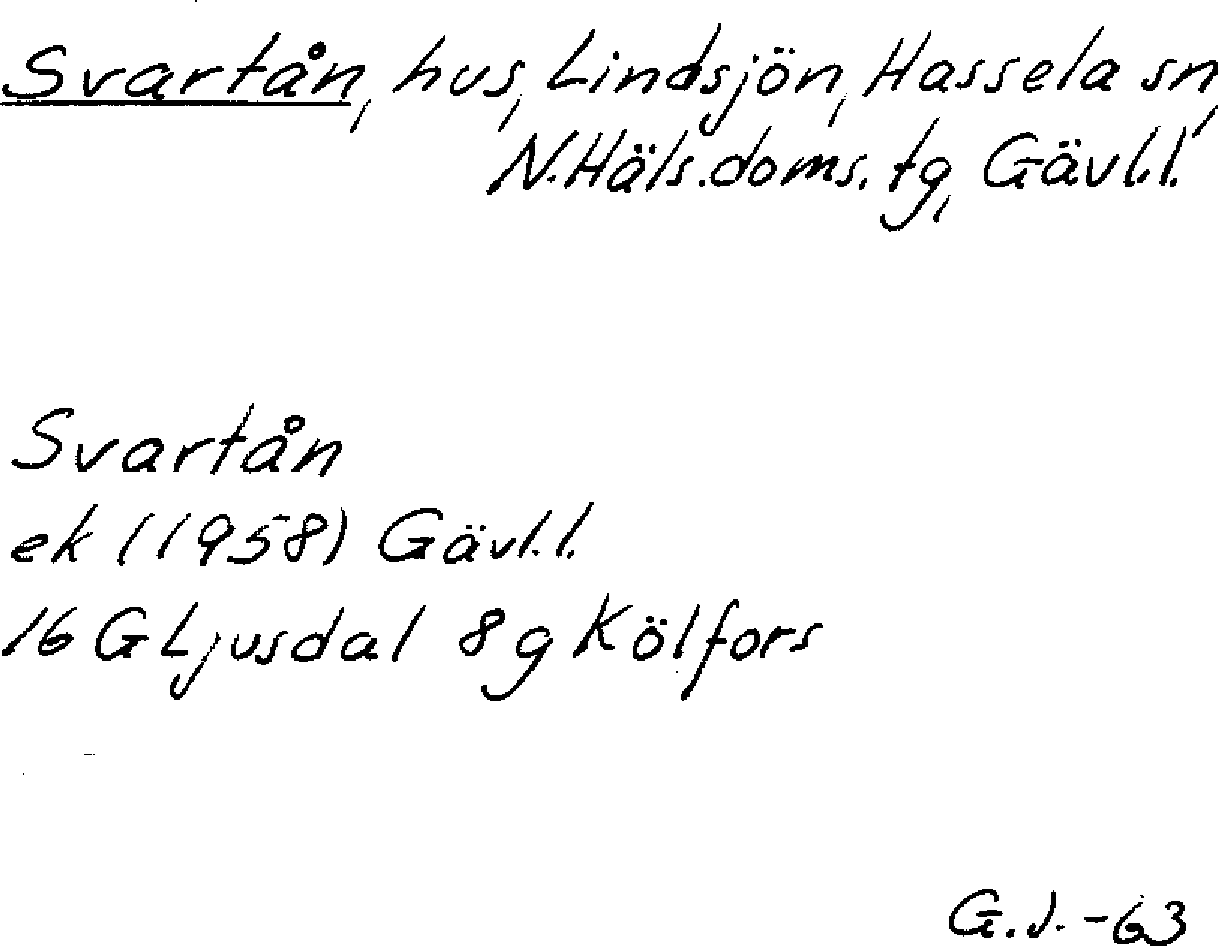 Svartån, hus, Lindsjön, Hassela sn,
N.Häls.doms.tg, Gävl.l.
Svartån
ek (1958) Gävl.l.
16 G Ljusdal 8g Kölfors
G.J.-63